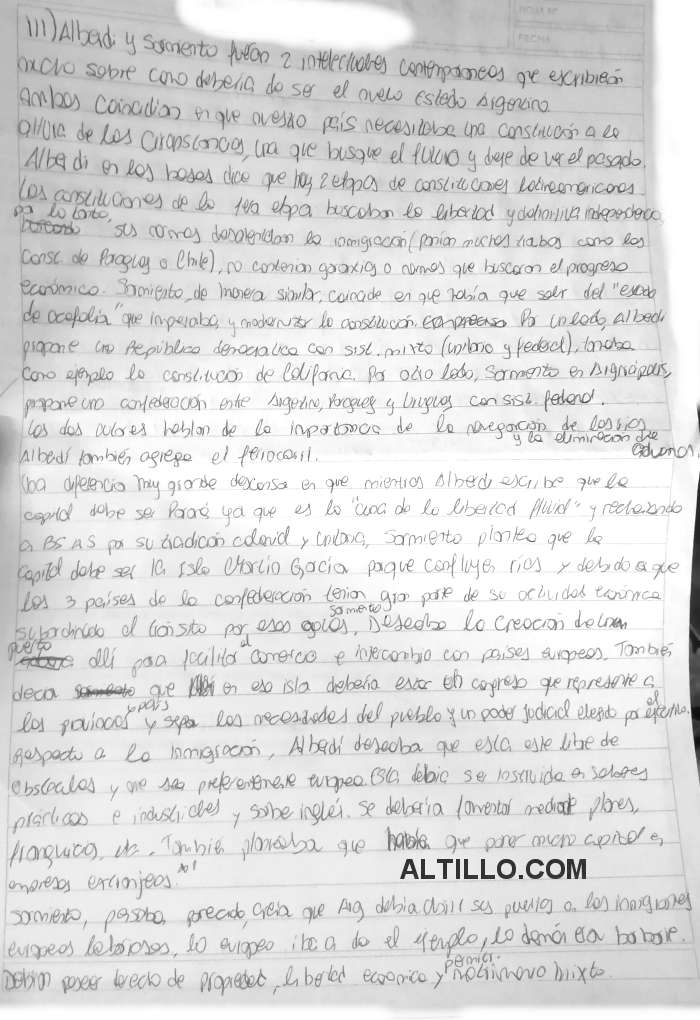 III) Alberdi y Sarmiento fueron 2 intelectuales contemporaneos que escribieron
mucho sobre como debería de ser el nuevo Estado Argentino
Ambos coincidian en que nuestro país necesitaba una constitución a la
altura de las circunstancias, una que busque el futuro y deje de ver el pasado.
Alberdi en las bases dice que hay 2 etapas de constituciones latinoamericanas.
Las constituciones de la 1era etapa buscaban la libertad y definitiva independencia,
por lo tanto, sus normas desalentaban la inmigración (ponian muchas trabas como las
Const. de Paraguay o Chile), no contenian garantias o normas que buscaran el progreso
económico. Sarmiento, de manera similar, coincide en que había que salir del "estado
de acefalia" que imperaba, y modernizar la constitución. Por un lado, Alberdi
propone una República democratica con sist. mixto (unitario y federal), tomaba
como ejemplo la constitución de California. Por otro lado, Sarmiento en Argirópolis,
propone una confederación entre Argentina, Paraguay y Uruguay con sist. federal.
Los dos autores hablan de la importancia de la navegación de los rios
y la eliminación de aduanas.
Alberdí también agrega el ferrocarril.
Una diferencia muy grande descansa en que mientras Alberdi escribe que la
capital debe ser Paraná ya que es la "cuna de la libertad fluvial" y rechazando
a BS AS por su tradición colonial y unitaria, Sarmiento plantea que la
capital debe ser la Isla Martín Garcia porque confluyen rios y debido a que
los 3 países de la confederación tenian gran parte de su actividad económica
subordinada al transito por esas aguas, Sarmiento Deseaba la creación de un
puerto allí para facilitar el comercio e intercambio con países europeos. También
decia que en esa isla debería estar el congreso que represente a
las provincias y países y sepa las necesidades del pueblo y un poder judicial elegido por el efectivo.
Respecto a la inmigración, Alberdí deseaba que esta este libre de
obstaculos y que sea preferentemente europea. Esta debia ser instruida en saberes
prácticos e industriales y saber inglés. Se debería fomentar mediante planes,
franquicias, etc. También planteaba que había que poner mucho capital en
empresas extranjeras.
ALTILLO.COM
Sarmiento, pensaba parecido, creia que Arg debia abrir sus puertas a los inmigrantes
europeos laboriosos, lo europeo iba a dar el ejemplo, lo demás era barbarie.
Debian poseer derecho de propiedad, libertad económica y permitir matrimonio mixto.